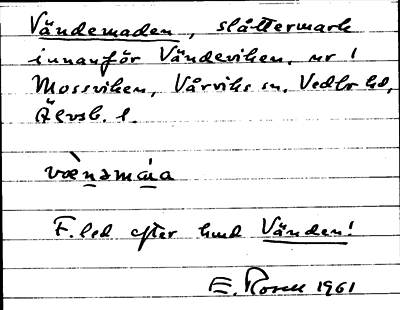 Vändemaden, slåttermark
innanför Vändeviken, nr 1
Mossviken, Vårviks sn. Vedbo hd,
Älvsb. l.
væ̀nəma̍a
F. led efter hmd Vänden!
E. Rosell 1961